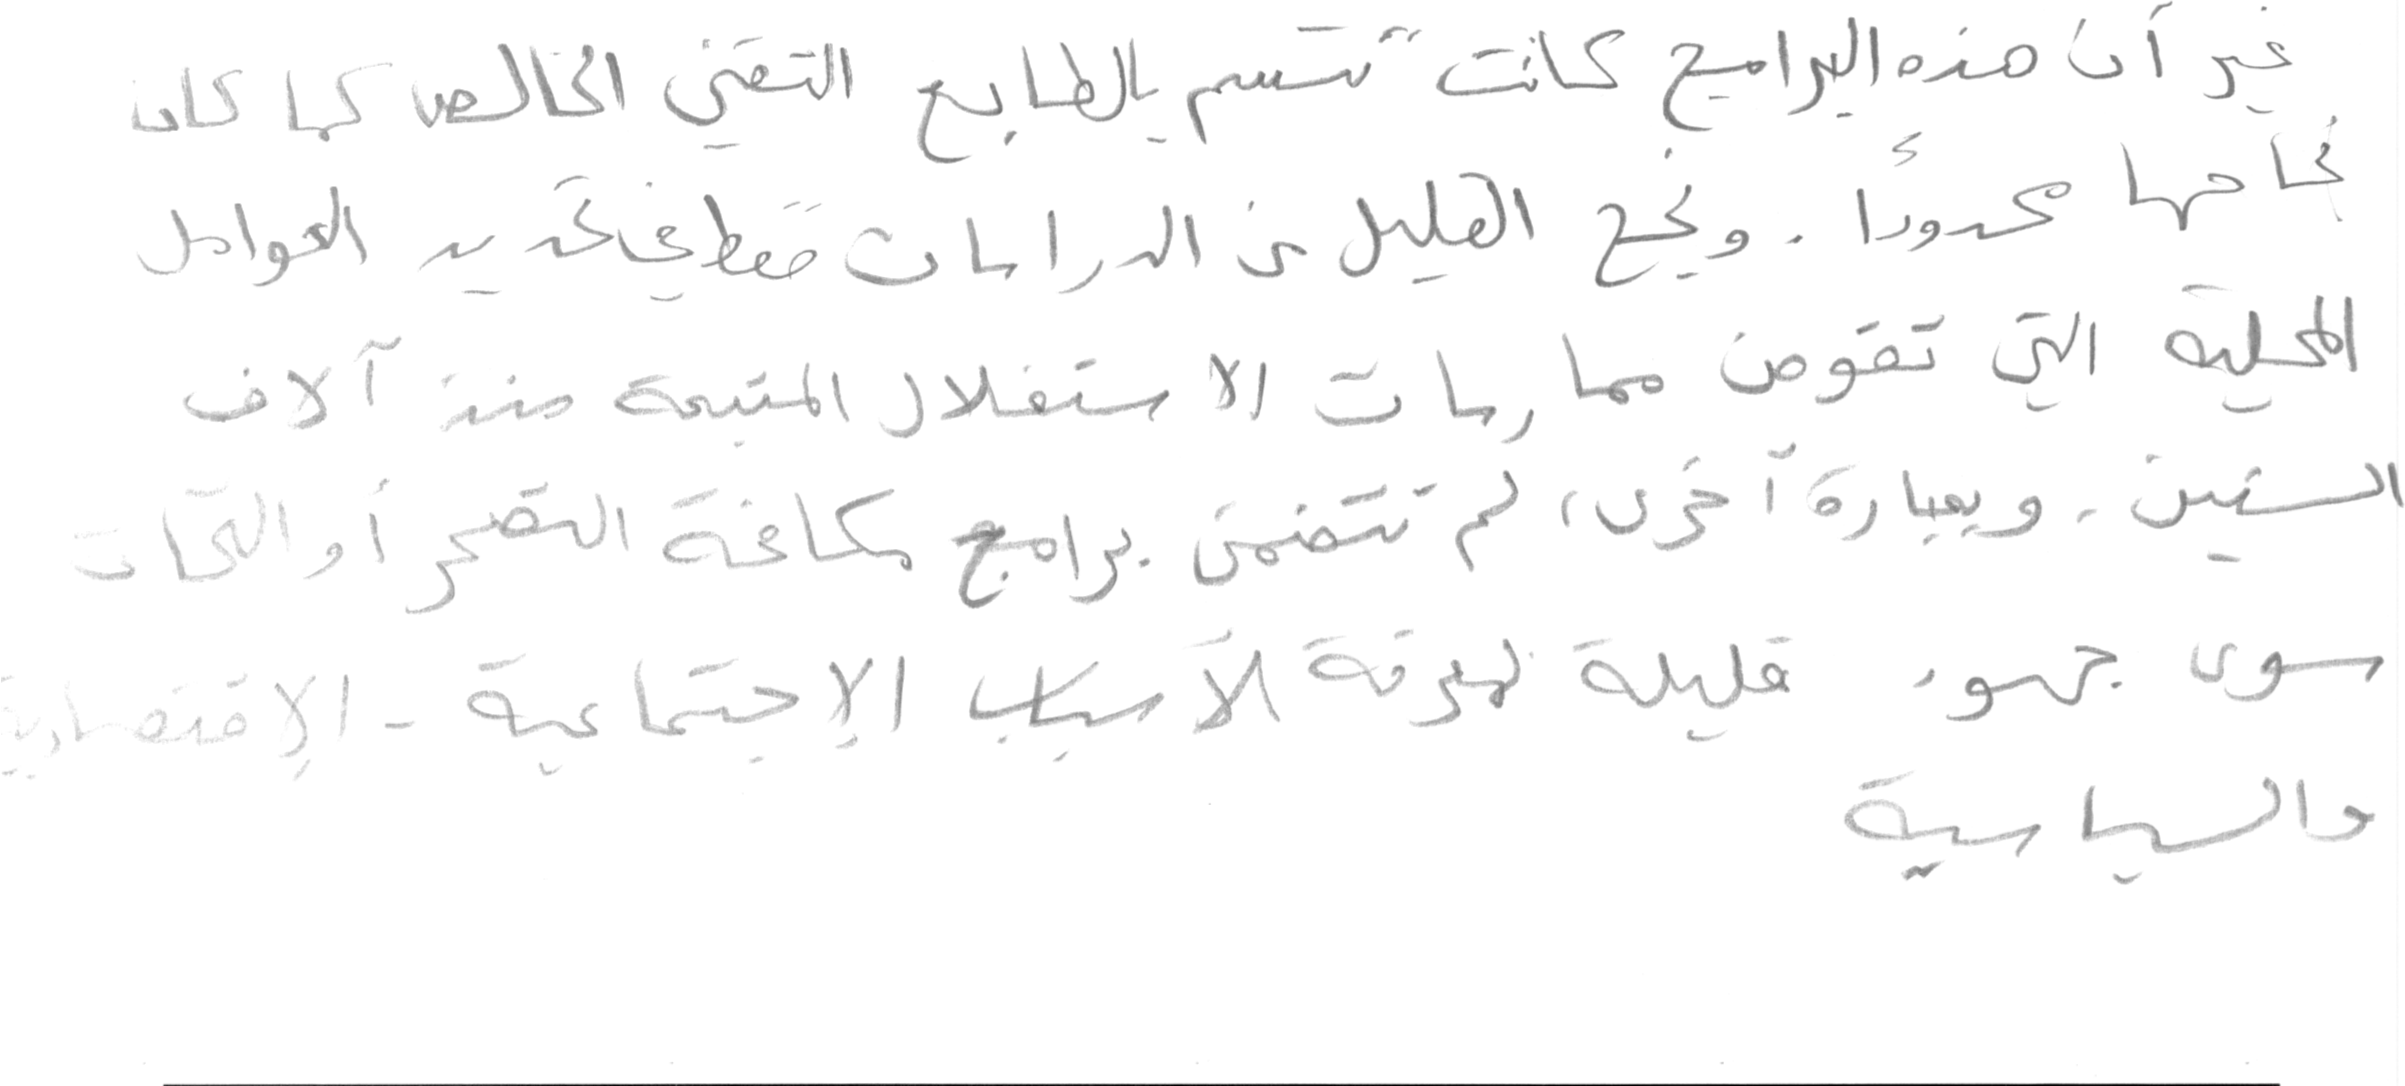 غير أن هذه البرامج كانت تتسم بالطابع التقني الخالص كما كان
نجاحها محدودًا . ونجح القليل من الدراسات فقط في تحديد العوامل
المحلية التي تقوض ممارسات الاستغلال المتبعة منذ آلاف
السنين . وبعبارة آخرى، لم تتضمن برامج مكافحة التصحر أو التحات
سوى جهود قليلة لمعرفة الأسباب الإجتماعية - الإقتصادية
والسياسية